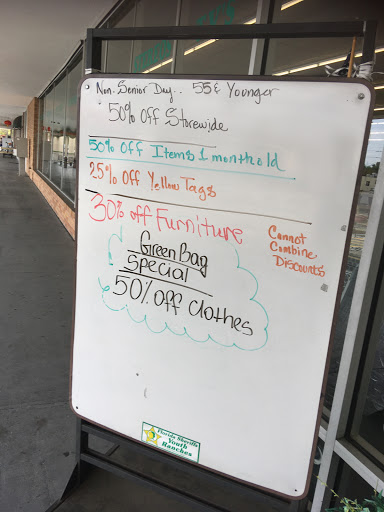 Non-Senior Day.. 55 & Younger
50% Off Storewide
50% Off Items 1 month old
25% Off Yellow Tags
30% off Furniture
Cannot
Combine
Discounts
Green Bag
Special
50% Off Clothes
Florida Sheriffs
Youth
Ranches